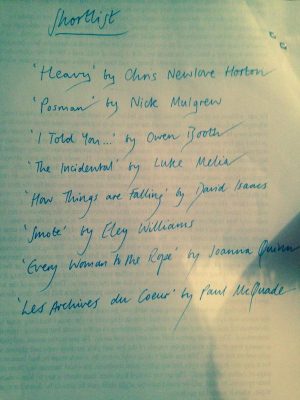 Shortlist
'Heavy' by Chris Newlove Horton
'Posman' by Nick Mulgrew
'I Told You...' by Owen Booth
'The Incidental' by Luke Melia
'How Things are Falling' by David Isaacs
'Smote' by Eley Williams
'Every Woman to the Rope' by Joanna Quinn
'Les Archives du Coeur' by Paul McQuade